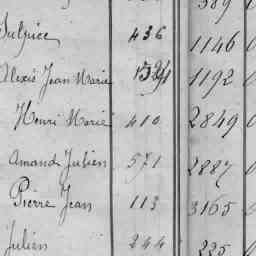 389
Sulpice 436 1146 0
Alexis Jean Marie 1192 0
Henri Marie 410 2849 0
Amand Julien 571 2887 0
Pierre Jean 113 3165 0
Julien 244 225